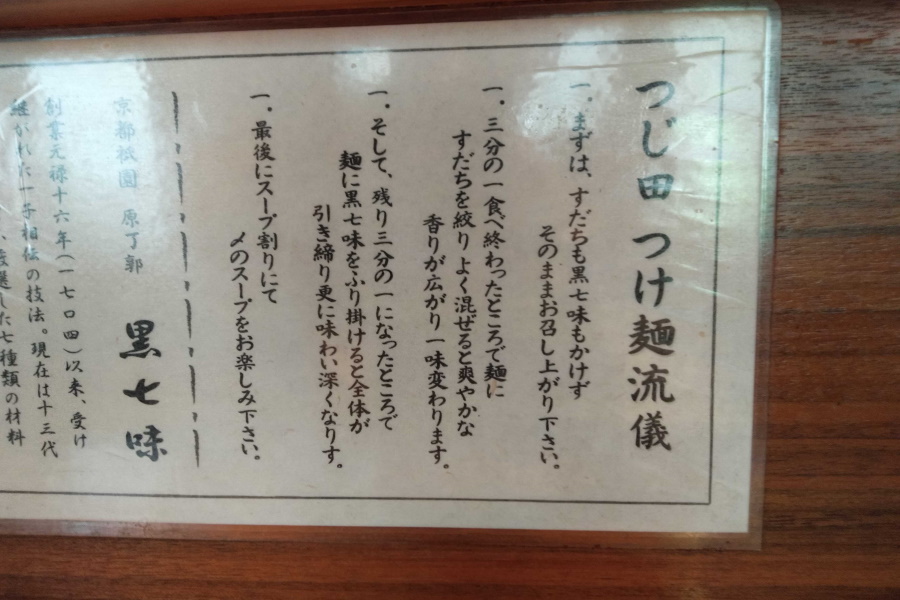 つじ田 つけ麺流儀
一．まずは、すだちも黒七味もかけず
そのままお召し上がり下さい。
一．三分の一食べ終わったところで麺に
すだちを絞り よく混ぜると爽やかな
香りが広がり 一味変わります。
一．そして、残り三分の一になったところで
麺に黒七味をふり掛けると全体が
引き締り更に味わい深くなりす。
一．最後にスープ割りにて
〆のスープをお楽しみ下さい。
黒七味
京都祇園 原了郭
創業元禄十六年(一七〇四)以来、受け
継がれた一子相伝の技法。現在は十三代
厳選した七種類の材料